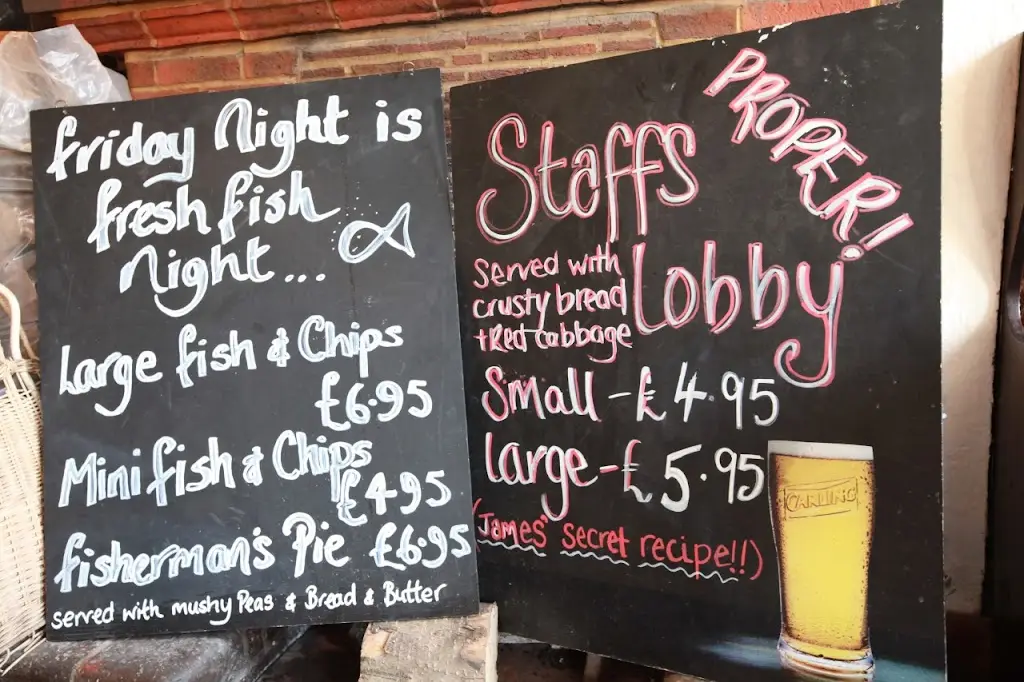 Friday Night is
fresh fish
Night...
Large fish & Chips
£6.95
Mini fish & Chips
£4.95
fisherman's Pie £6.95
served with mushy Peas & Bread & Butter
PROPER!
Staffs
Lobby
Served with
crusty bread
+ Red cabbage
Small - £4.95
Large - £5.95
(James' Secret recipe!!)
CARLING